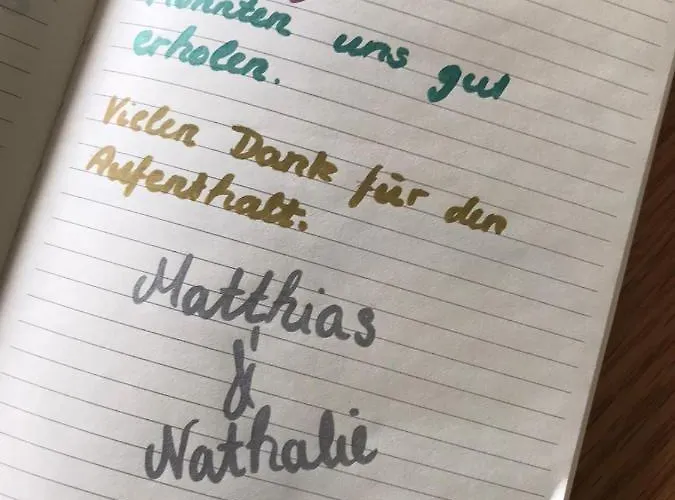 konnten uns gut
erholen.
Vielen Dank für den
Aufenthalt.
Matthias
&
Nathalie